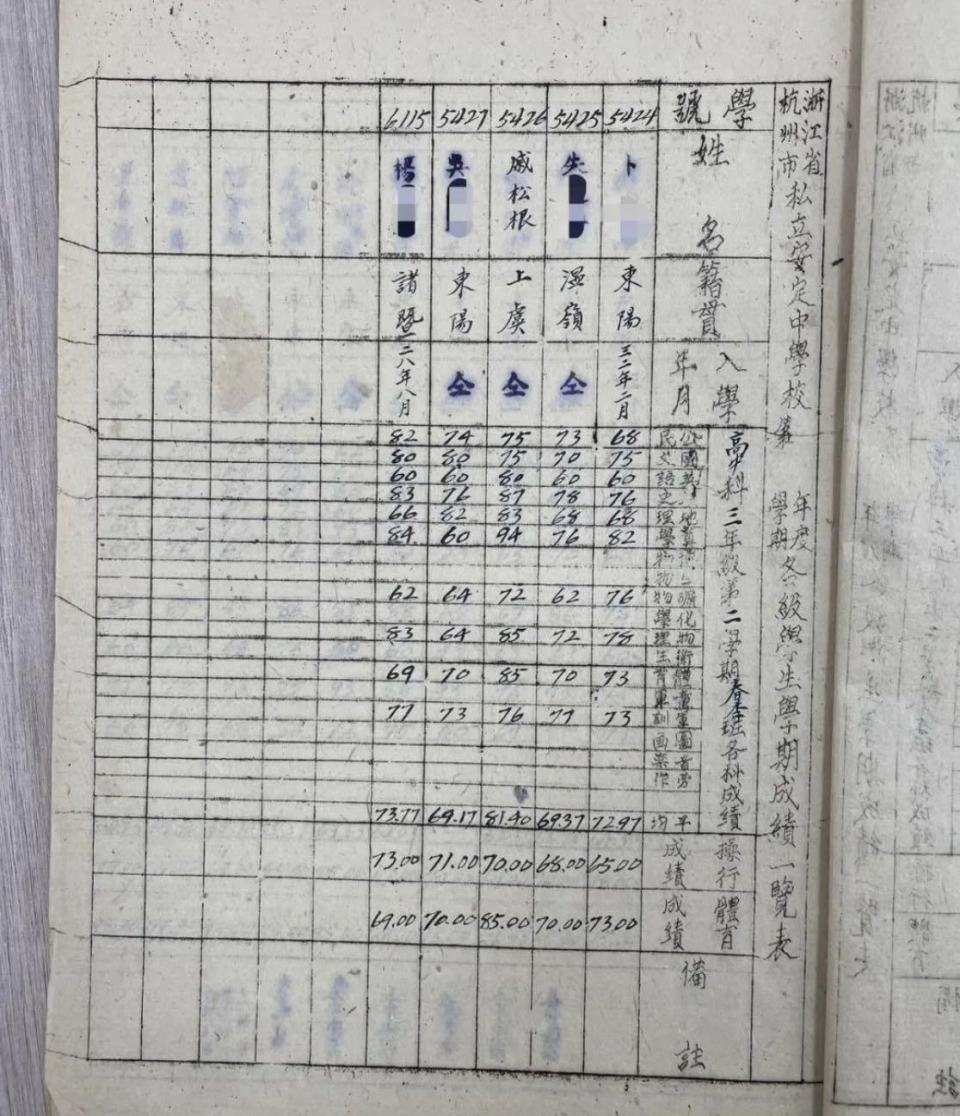 浙江省
杭州市
私立安定中學校
第
年度
學期
各級學生學期成績一覽表
學號
姓名
籍貫
入學
年月
高中科三年級第二學期春季班各科成績
公民
國文
英語
歷史
地理
算學
化學
物理
體育
軍訓
圖画
音樂
勞作
平均
操行
成績
體育
成績
備註
5424
卜
東陽
三二年二月
68
75
60
76
68
82
76
78
73
73
72.97
65.00
73.00
5425
朱
溫嶺
仝
73
70
60
78
68
76
62
72
70
77
69.37
68.00
70.00
5426
戚松根
上虞
仝
75
75
80
87
83
94
72
85
85
76
81.40
70.00
85.00
5427
吳
東陽
仝
74
80
60
76
82
60
64
64
70
73
69.17
71.00
70.00
6115
楊
諸暨
二八年八月
82
80
60
83
66
84
62
83
69
77
73.77
73.00
69.00